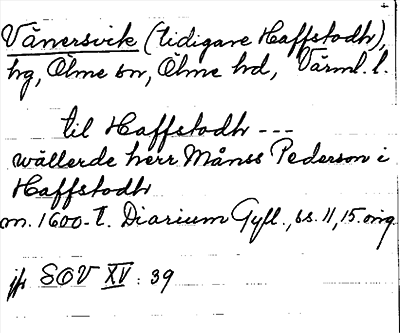 Vänersvik (tidigare Haffstodh),
hg, Ölme sn, Ölme hd, Värml. l.
til Haffstodh ---
wällerde herr Månss Pederson i
Haffstodh
m. 1600-t. Diarium Gyll., ss. 11, 15. orig.
jfr SOV XV: 39